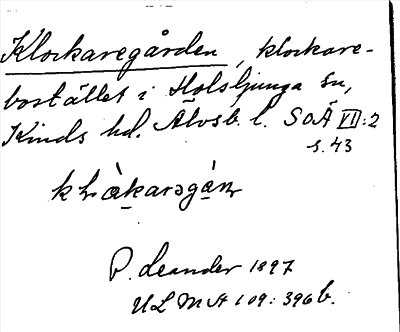 Klockaregården, klockare-
bostället i Holsljunga sn,
Kinds hd. Älvsb. l. SOÄ VII:2
s. 43
P. Leander 1897
ULMA 109:396b.